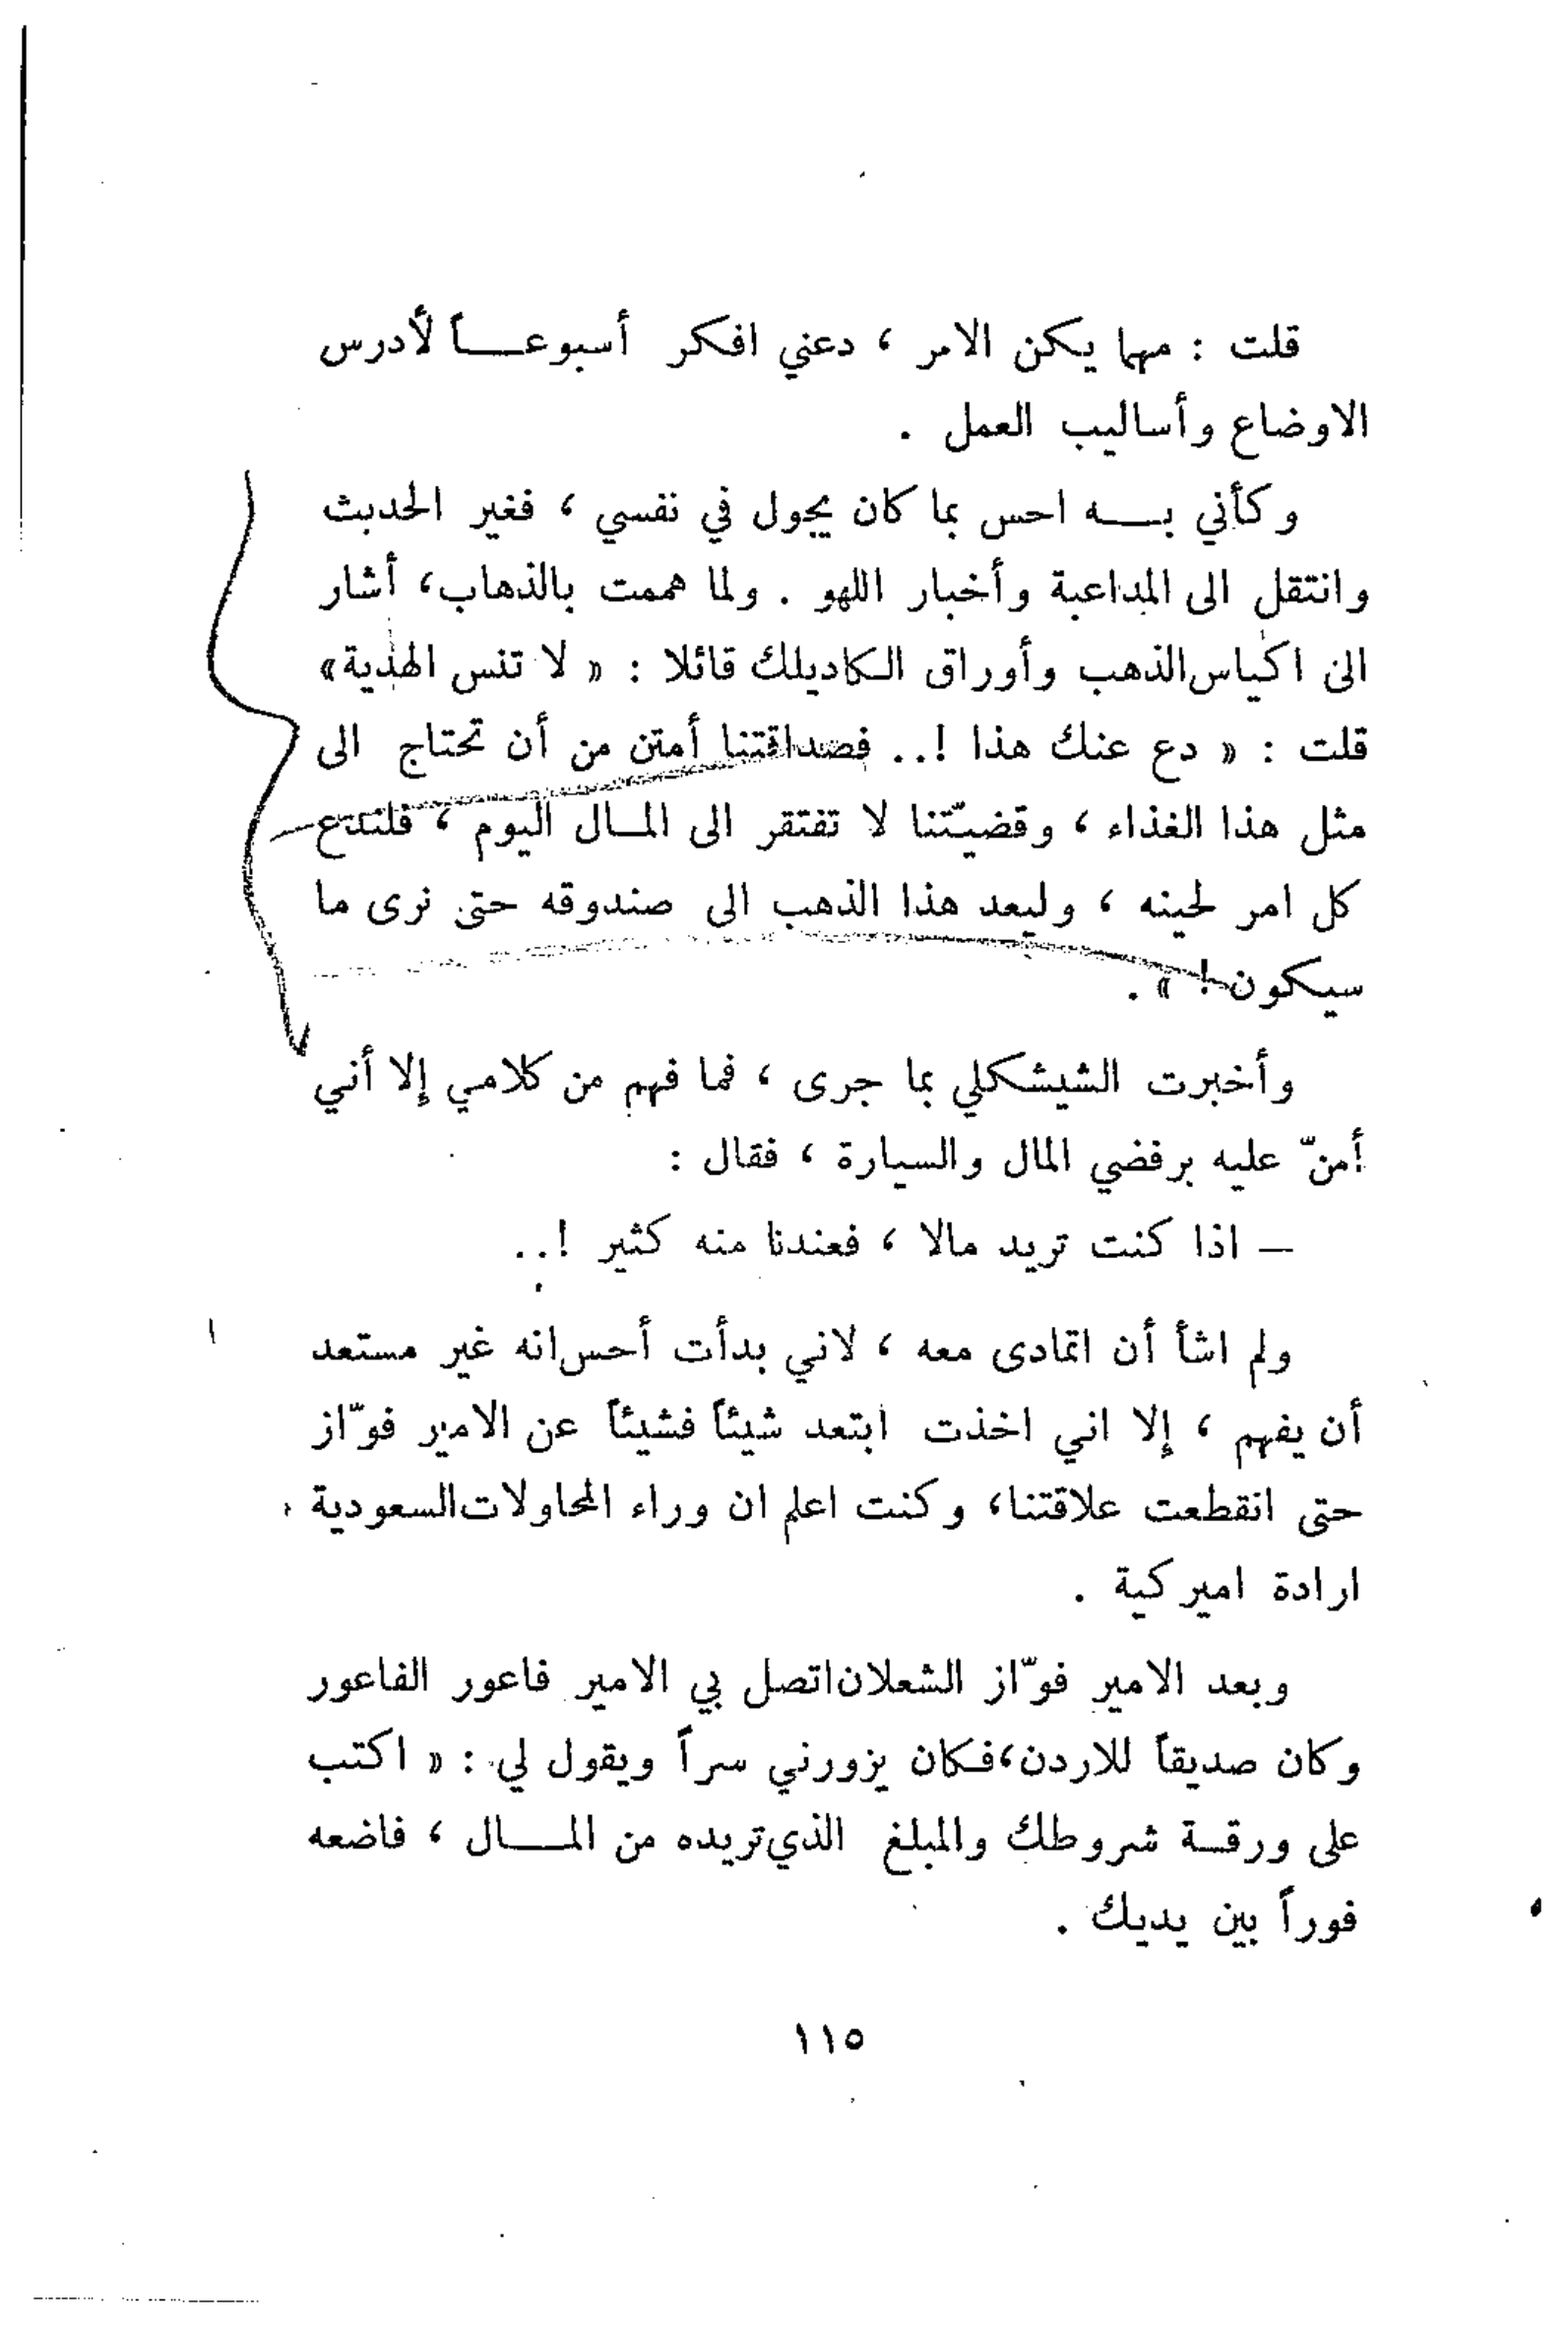 قلت : مهما يكن الامر ، دعني افكر أسبوعـــاً لأدرس
الاوضاع وأساليب العمل .
وكأني بـــه احس بما كان يجول في نفسي ، فغير الحديث
وانتقل الى المداعبة وأخبار اللهو . ولما هممت بالذهاب، أشار
الى اكياس الذهب وأوراق الكاديلك قائلا : « لا تنس الهدية»
قلت : « دع عنك هذا !.. فصداقتنا أمتن من أن تحتاج الى
مثل هذا الغذاء ، وقضيّتنا لا تفتقر الى المــال اليوم ، فلندع
كل امر لحينه ، وليعد هذا الذهب الى صندوقه حتى نرى ما
سيكون ! » .
وأخبرت الشيشكلي بما جرى ، فما فهم من كلامي إلا أني
أمنّ عليه برفضي المال والسيارة ، فقال :
– اذا كنت تريد مالا ، فعندنا منه كثير !..
ولم اشأ أن اتمادى معه ، لاني بدأت أحس انه غير مستعد
أن يفهم ، إلا اني اخذت ابتعد شيئاً فشيئاً عن الامير فوّاز
حتى انقطعت علاقتنا، وكنت اعلم ان وراء المحاولات السعودية
ارادة اميركية .
وبعد الامير فوّاز الشعلان اتصل بي الامير فاعور الفاعور
وكان صديقاً للاردن، فكان يزورني سراً ويقول لي : « اكتب
على ورقـــة شروطك والمبلغ الذي تريده من المـــال ، فاضعه
فوراً بين يديك .
١١٥